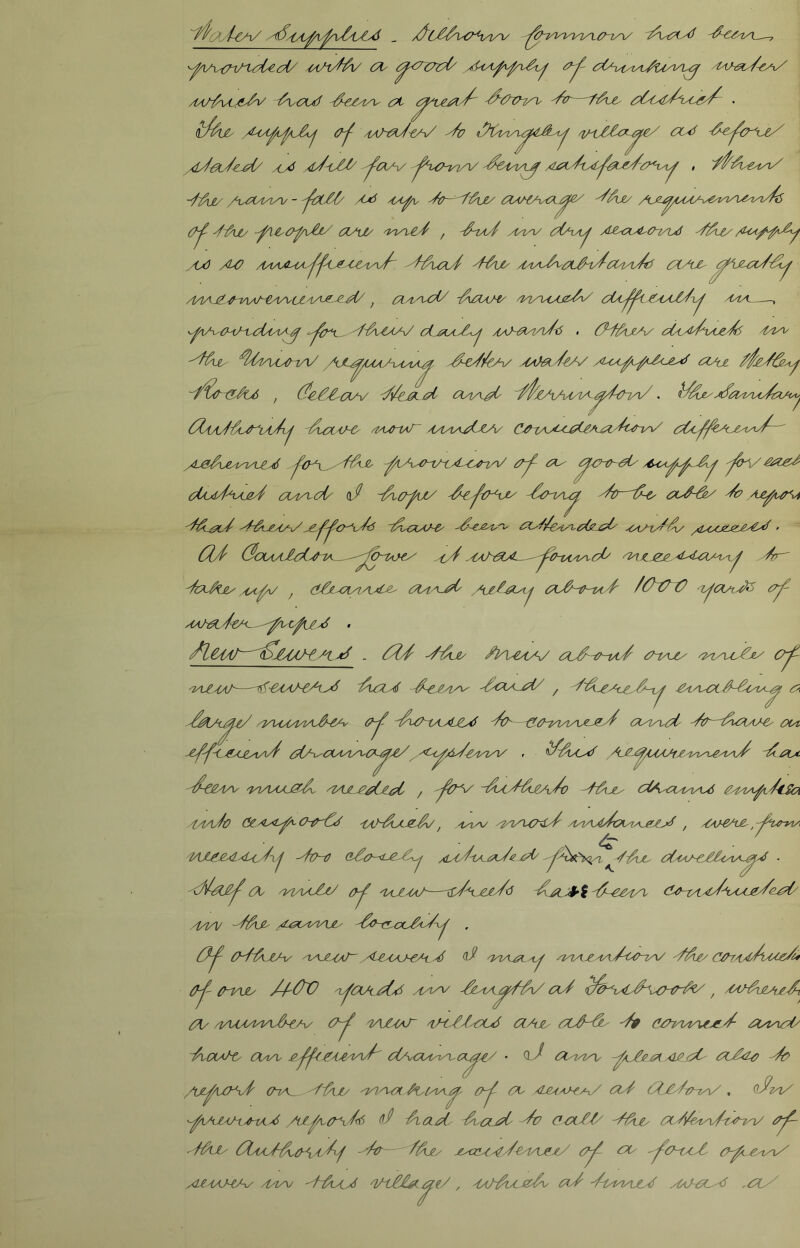 Water Supplies. Silkmoor Common has been
provided with a good supply of drinking water
which has been a great boon to the district.
The supply of water to Kingsley village as before
stated is still far from being satisfactory. When
the rain-fall is up to the average the requirements
of the people are met, but in dry seasons the supply
is so insufficient that the inhabitants are greatly
inconvenienced, and have much difficulty in
providing for their daily wants. Other districts in
the Union requiring better water supplies are Tetley
Rocks, Cellar Head and Werrington. The Sanitary
Authority have now under consideration different
schemes for the provision of a good supply for each
district and I hope before long to be able to report
that their efforts have been attended with success.
At Cauldon Lowe it was found necessary to
take up, cleanse and relay about 1000 yards of
water-pipes.
New Sewers. At the Mews about one mile of
new sewers has been laid, thereby enabling a
large number of houses to connect and to have an
efficient drainage system. This requirement has
been much needed, for hitherto the drains emptied
into cesspools which, in most instances, were, from
necessity too closely situated from the dwellings.
Half a mile of new streets has been constructed
in the same locality.
Of other new sewers I may mention the construction
of one 400 yards in length at Tonsbrook, whereby
a number of new villas are able to connect and
have an efficient drainage. I am pleased also to
report on the making of a sewer at Alton. In
previous reports I had had to call the attention of
the Authority to the existence of a foul open
sewer in this village, which at times was a